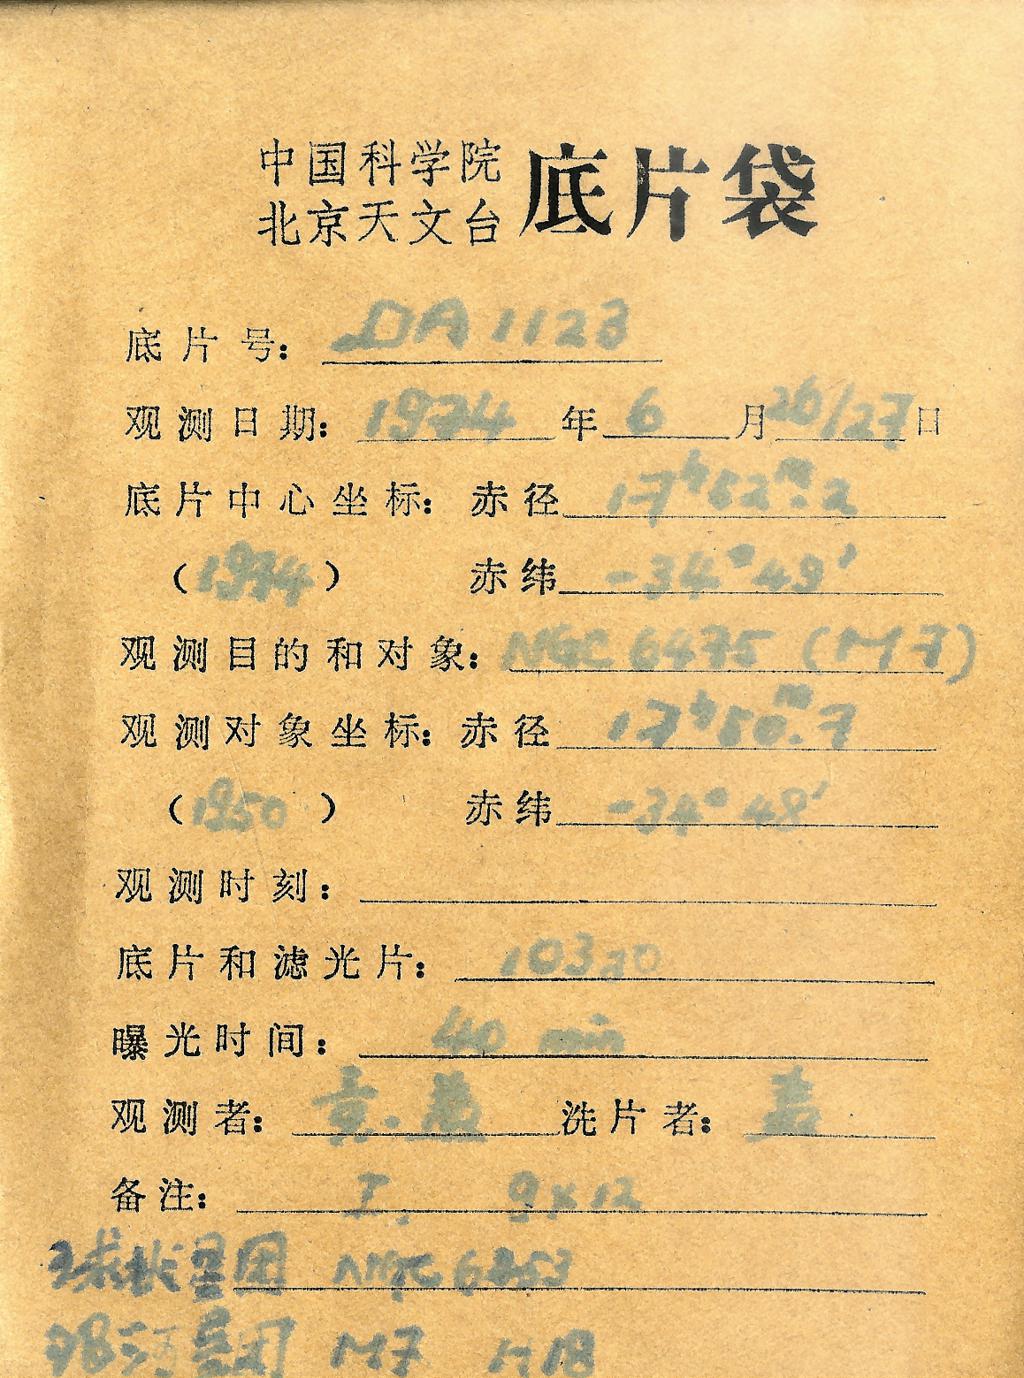 中国科学院
北京天文台 底片袋
底片号: DA 1123
观测日期: 1974 年 6 月 26/27 日
底片中心坐标: 赤径 17ʰ52ᵐ.2
(1974) 赤纬 -34°49′
观测目的和对象: NGC 6475 (M7)
观测对象坐标: 赤径 17ʰ50ᵐ.7
(1950) 赤纬 -34°48′
观测时刻:
底片和滤光片:
曝光时间: 40 min
观测者: 洗片者:
备注: I. 9×12
球状星团 NGC 6453
银河星团 M7